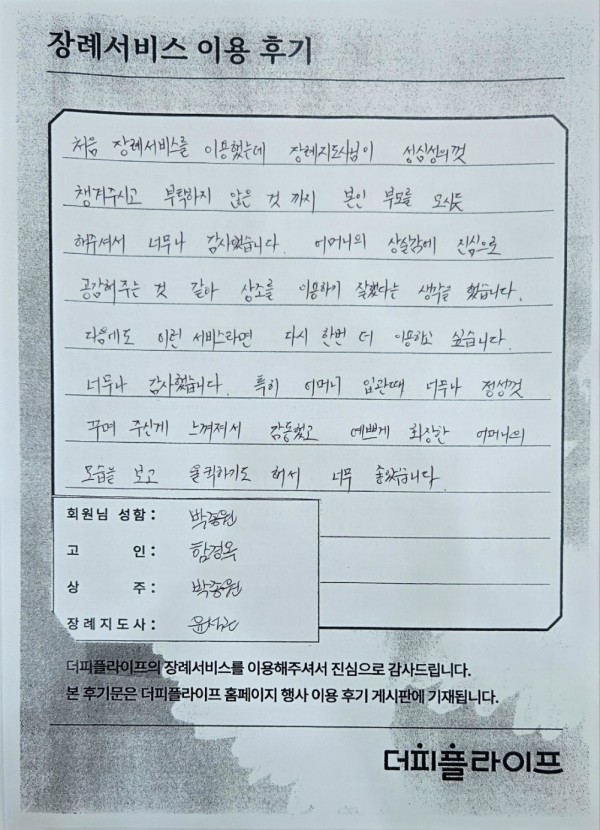 장례서비스 이용 후기
처음 장례서비스를 이용했는데 장례지도사님이 성심성의껏
챙겨주시고 부탁하지 않은 것 까지 본인 부모를 모시듯
해주셔서 너무나 감사했습니다. 어머니의 상실감에 진심으로
공감해주는 것 같아 상조를 이용하기 잘했다는 생각을 했습니다.
다음에도 이런 서비스라면 다시 한번 더 이용하고 싶습니다.
너무나 감사했습니다. 특히 어머니 입관때 너무나 정성껏
꾸며 주신게 느껴져서 감동했고 예쁘게 화장한 어머니의
모습을 보고 울컥하기도 해서 너무 좋았습니다.
회원님 성함: 박종원
고 인: 함경옥
상 주: 박종원
장례지도사:
더피플라이프의 장례서비스를 이용해주셔서 진심으로 감사드립니다.
본 후기문은 더피플라이프 홈페이지 행사 이용 후기 게시판에 기재됩니다.
더피플라이프